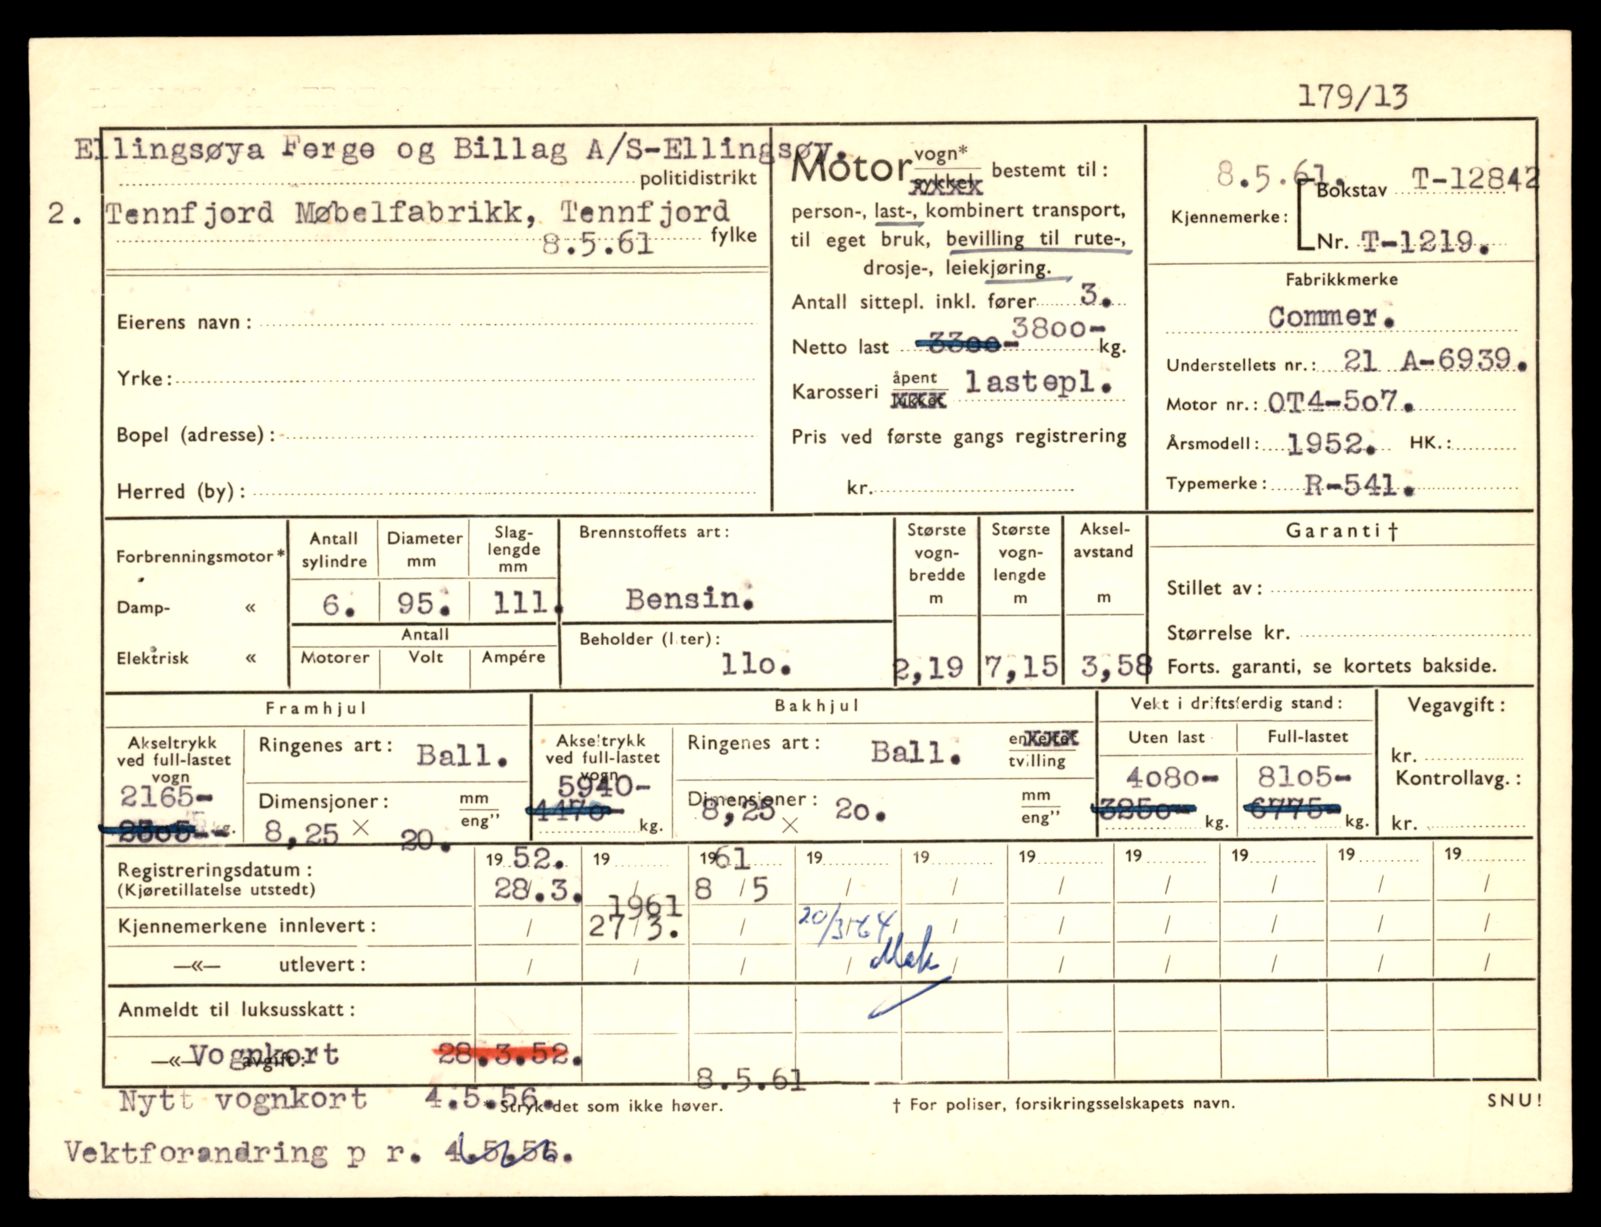 179/13
Ellingsøya Ferge og Billag A/S-Ellingsøy.
politidistrikt
2. Tennfjord Møbelfabrikk, Tennfjord
8.5.61 fylke
Eierens navn:
Yrke:
Bopel (adresse):
Herred (by):
Motor vogn* sykkel bestemt til:
person-, last-, kombinert transport,
til eget bruk, bevilling til rute-,
drosje-, leiekjøring.
Antall sittepl. inkl. fører 3.
3800-
Netto last 3300- kg.
Karosseri åpent lukket lastepl.
Pris ved første gangs registrering
kr.
8.5.61. Bokstav T-12842
Kjennemerke:
Nr. T-1219.
Fabrikkmerke
Commer.
Understellets nr.: 21 A-6939.
Motor nr.: OT4-507.
Årsmodell: 1952. HK.:
Typemerke: R-541.
Forbrenningsmotor*
Damp- «
Elektrisk «
Antall sylindre
6.
Diameter mm
95.
Slag-lengde mm
111.
Antall
Motorer Volt Ampére
Brennstoffets art:
Bensin.
Beholder (liter):
110.
Største vogn-bredde m
2,19
Største vogn-lengde m
7,15
Aksel-avstand m
3,58
Garanti †
Stillet av:
Størrelse kr.
Forts. garanti, se kortets bakside.
Framhjul
Akseltrykk ved full-lastet vogn
2165-
2305-- kg.
Ringenes art: Ball.
Dimensjoner: mm eng"
8,25 × 20.
Bakhjul
Akseltrykk ved full-lastet vogn
5940-
4470- kg.
Ringenes art: Ball. enkelte tvilling
Dimensjoner: mm eng"
8,25 × 20.
Vekt i driftsferdig stand:
Uten last Full-lastet
4080- 8105-
3250- kg. 6775- kg.
Vegavgift:
kr.
Kontrollavg.:
kr.
Registreringsdatum: 19 52. 19 19 61 19 19 19 19 19 19 19
(Kjøretillatelse utstedt) 28/.3. / 8 / 5 / / / / / / /
1961
Kjennemerkene innlevert: / 27/3. / 20/3-64 / / / / / /
—«— utlevert: / / / / / / / / / /
Anmeldt til luksusskatt:
—«— avgift: Vognkort 28.3.52.
8.5.61
Nytt vognkort 4.5.56.
Stryk det som ikke høver.
† For poliser, forsikringsselskapets navn.
SNU!
Vektforandring p r. 4.5.56.